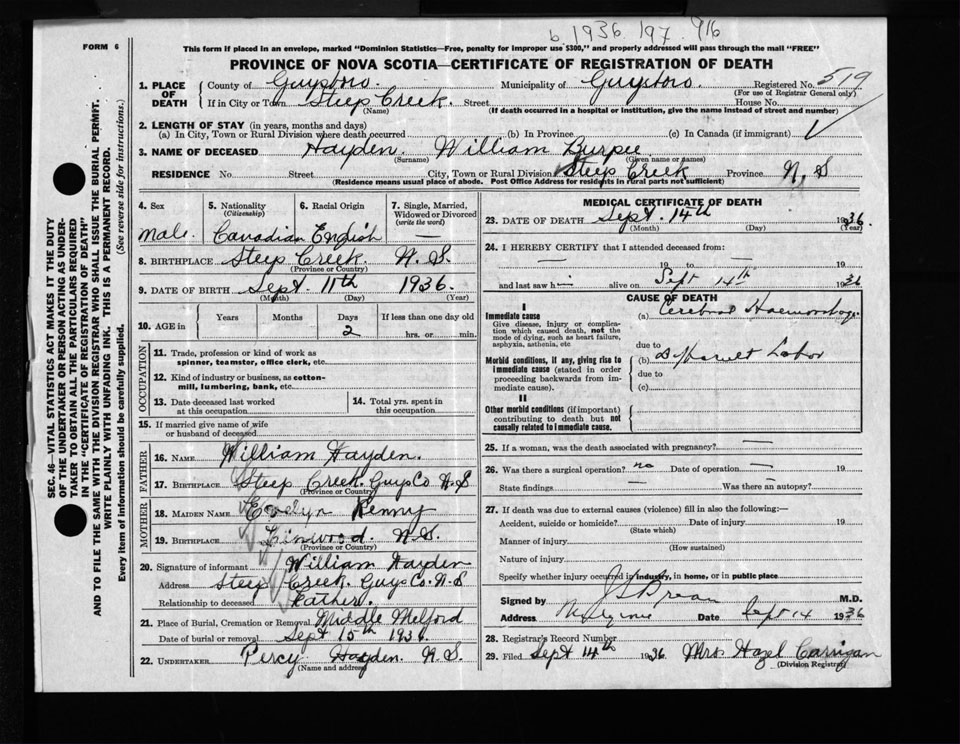 b 1936 197 916
FORM 6
This form if placed in an envelope, marked "Dominion Statistics—Free, penalty for improper use $300," and properly addressed will pass through the mail "FREE"
PROVINCE OF NOVA SCOTIA—CERTIFICATE OF REGISTRATION OF DEATH
SEC. 46—VITAL STATISTICS ACT MAKES IT THE DUTY
OF THE UNDERTAKER OR PERSON ACTING AS UNDER-
TAKER TO OBTAIN ALL THE PARTICULARS REQUIRED
IN THE "CERTIFICATE OF REGISTRATION OF DEATH"
AND TO FILE THE SAME WITH THE DIVISION REGISTRAR WHO SHALL ISSUE THE BURIAL PERMIT.
WRITE PLAINLY WITH UNFADING INK. THIS IS A PERMANENT RECORD.
Every item of information should be carefully supplied. (See reverse side for instructions.)
1. PLACE OF DEATH County of Guysboro. Municipality of Guysboro Registered No. 519
(For use of Registrar General only)
If in City or Town Steep Creek. Street House No.
(Name) (If death occurred in a hospital or institution, give the name instead of street and number)
2. LENGTH OF STAY (in years, months and days)
(a) In City, Town or Rural Division where death occurred (b) In Province (c) In Canada (if immigrant)
3. NAME OF DECEASED Hayden. William Burpee
(Surname) (Given name or names)
RESIDENCE No. Street City, Town or Rural Division Steep Creek Province N. S
(Residence means usual place of abode. Post Office Address for residents in rural parts not sufficient)
4. Sex 5. Nationality (Citizenship) 6. Racial Origin 7. Single, Married, Widowed or Divorced (write the word)
male Canadian English —
8. BIRTHPLACE Steep Creek N. S.
(Province or Country)
9. DATE OF BIRTH Sept 11th 1936.
(Month) (Day) (Year)
10. AGE in Years Months Days If less than one day old
2 hrs. or min.
OCCUPATION
11. Trade, profession or kind of work as spinner, teamster, office clerk, etc.
12. Kind of industry or business, as cotton-mill, lumbering, bank, etc.
13. Date deceased last worked at this occupation 14. Total yrs. spent in this occupation
15. If married give name of wife or husband of deceased
FATHER
16. NAME William Hayden.
17. BIRTHPLACE Steep Creek. Guys Co N. S
(Province or Country)
MOTHER
18. MAIDEN NAME Evelyn Kenny
19. BIRTHPLACE Linwood. N. S.
(Province or Country)
20. Signature of informant William Hayden
Address Steep Creek. Guys Co. N. S
Relationship to deceased Father.
21. Place of Burial, Cremation or Removal Middle Melford
Date of burial or removal Sept 15th 1936.
22. UNDERTAKER Percy Hayden. N. S.
(Name and address)
MEDICAL CERTIFICATE OF DEATH
23. DATE OF DEATH Sept. 14th 1936.
(Month) (Day) (Year)
24. I HEREBY CERTIFY that I attended deceased from:
— 19 to — 19
and last saw h— alive on Sept 14th 1936
CAUSE OF DEATH
I
Immediate cause (a) Cerebral Haemorrhage
Give disease, injury or complication which caused death, not the mode of dying, such as heart failure, asphyxia, asthenia, etc
due to
Morbid conditions, if any, giving rise to immediate cause (stated in order proceeding backwards from immediate cause). (b) Labor
due to
(c)
II
Other morbid conditions (if important) contributing to death but not causally related to immediate cause.
25. If a woman, was the death associated with pregnancy? —
26. Was there a surgical operation? no Date of operation — 19
State findings — Was there an autopsy? —
27. If death was due to external causes (violence) fill in also the following:—
Accident, suicide or homicide? Date of injury 19
(State which)
Manner of injury
(How sustained)
Nature of injury
Specify whether injury occurred in industry, in home, or in public place
Signed by M.D.
Address Mulgrave Date Sept 14 1936
28. Registrar's Record Number
29. Filed Sept 14th 1936 Mrs Hazel Carrigan
(Division Registrar)